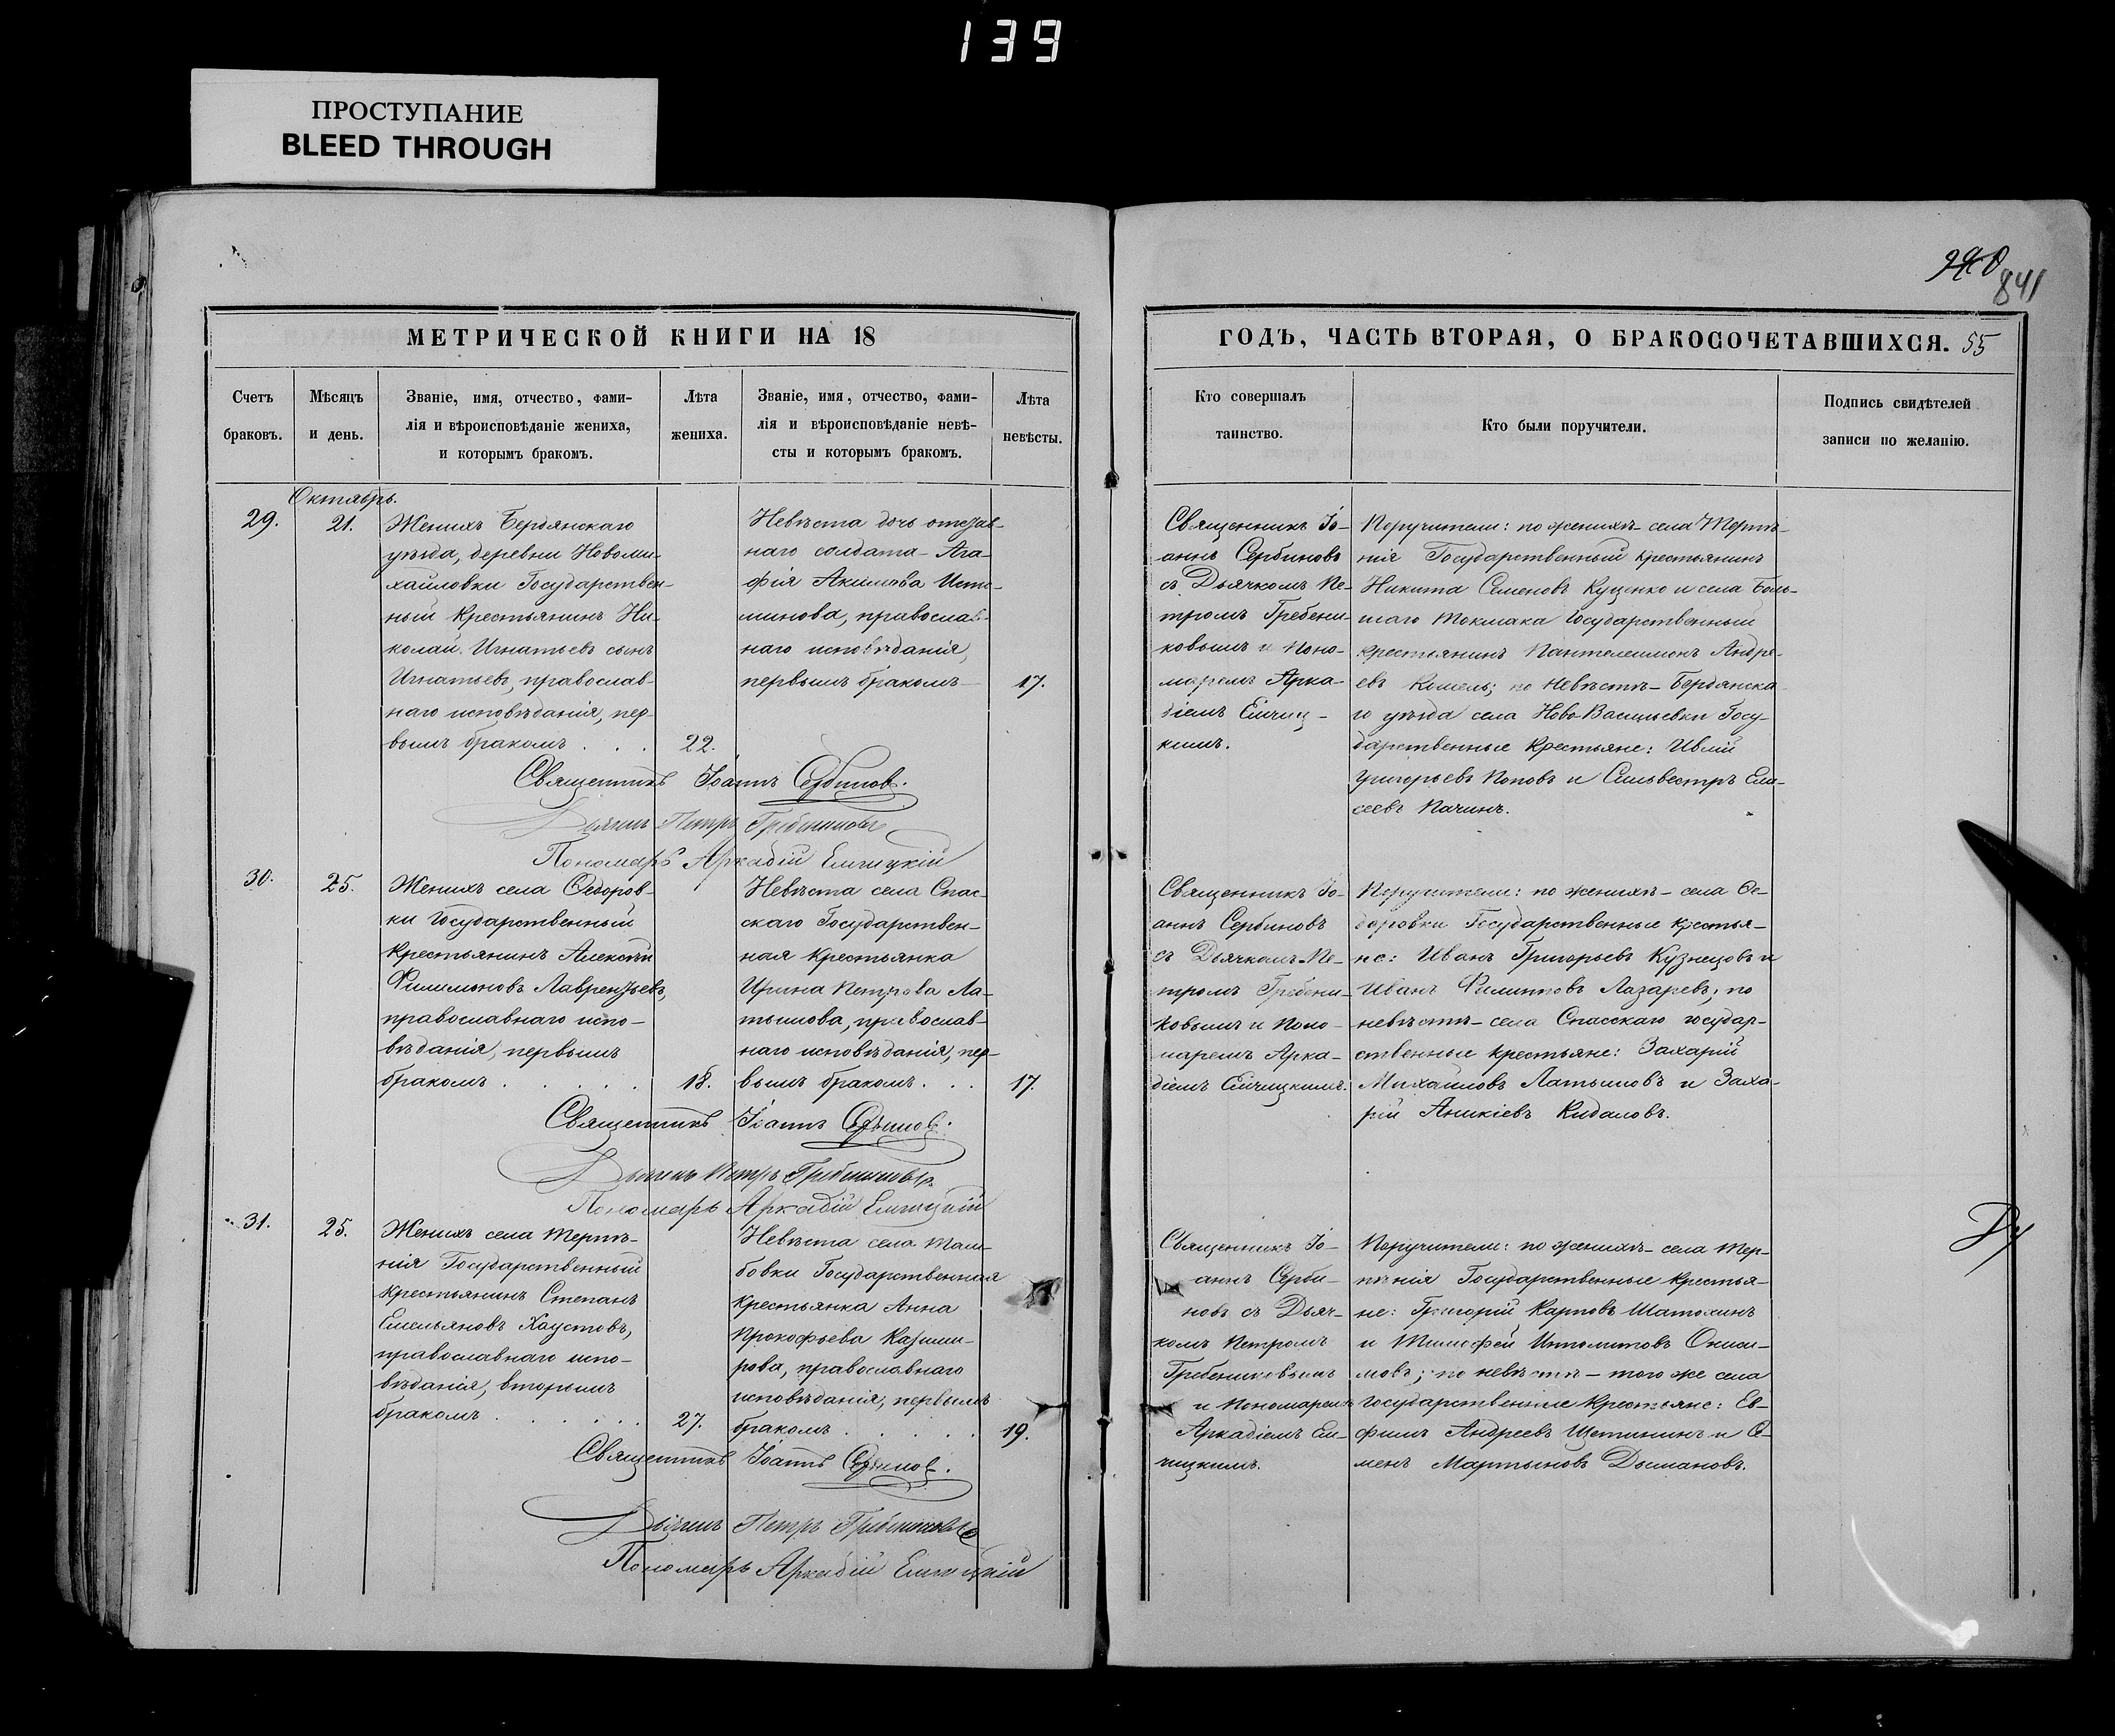 139
ПРОСТУПАНИЕ
BLEED THROUGH
841
МЕТРИЧЕСКОЙ КНИГИ НА 18
Счетъ
браковъ.
Мѣсяцъ
и день.
Званіе, имя, отчество, фами-
лія и вѣроисповѣданіе жениха,
и которымъ бракомъ.
Лѣта
жениха.
Званіе, имя, отчество, фами-
лія и вѣроисповѣданіе невѣ-
сты и которымъ бракомъ.
Лѣта
невѣсты.
ГОДЪ, ЧАСТЬ ВТОРАЯ, О БРАКОСОЧЕТАВШИХСЯ. 55
Кто совершалъ
таинство.
Кто были поручители.
Подпись свидѣтелей
записи по желанію.
Октябрь.
29.
21.
Женихъ Бердянскаго
уѣзда, деревни Новоми-
хайловки Государствен-
ный крестьянинъ Ни-
колай Игнатьевъ сынъ
Игнатьевъ, православ-
наго исповѣданія, пер-
вымъ бракомъ . . .
22.
Невѣста дочь отстав-
наго солдата Ага-
фія Акимова Исто-
минова, православ-
наго исповѣданія,
первымъ бракомъ
17.
Священникъ Іо-
аннъ Сербиновъ
съ Дьячкомъ Пе-
тромъ Гребени-
ковымъ и Поно-
маремъ Арка-
діемъ Емчиц-
кимъ.
Поручители: по женихѣ села Терпѣ-
нія Государственный крестьянинъ
Никита Семеновъ Куценко и села Боль-
шаго Токмака Государственный
крестьянинъ Пантелеимонъ Андре-
евъ Кошель; по Невѣстѣ Бердянска-
го уѣзда села Ново-Васильевки Госу-
дарственные крестьяне: Ивлій
Григорьевъ Поповъ и Сильвестръ Ели-
сеевъ Пачинъ.
Священникъ Іоаннъ Сербиновъ.
Дьячекъ Петръ Гребениковъ
Пономарь Аркадій Емчицкій
30.
25.
Женихъ села Ѳедоров-
ки Государственный
крестьянинъ Алексѣй
Филимоновъ Лаврентьевъ,
православнаго испо-
вѣданія, первымъ
бракомъ . . . . .
18.
Невѣста села Спас-
скаго Государствен-
ная крестьянка
Ирина Петрова Ла-
тышова, православ-
наго исповѣданія, пер-
вымъ бракомъ . . .
17.
Священникъ Іо-
аннъ Сербиновъ
съ Дьячкомъ Пе-
тромъ Гребени-
ковымъ и Поно-
маремъ Арка-
діемъ Емчицкимъ.
Поручители: по женихѣ села Ѳе-
доровки Государственные крестья-
не: Иванъ Григорьевъ Кузнецовъ и
Иванъ Филипповъ Лазаревъ; по
невѣстѣ села Спасскаго государ-
ственные крестьяне: Захарій
Михайловъ Латышовъ и Заха-
рій Аникіевъ Кидаловъ.
Священникъ Іоаннъ Сербиновъ.
Дьячекъ Петръ Гребениковъ
Пономарь Аркадій Емчицкій
31.
25.
Женихъ села Терпѣ-
нія Государственный
крестьянинъ Степанъ
Емельяновъ Хаустовъ,
православнаго испо-
вѣданія, вторымъ
бракомъ . . . . .
27.
Невѣста села Там-
бовки Государственная
крестьянка Анна
Прокофьева Казими-
рова, православнаго
исповѣданія, первымъ
бракомъ . . . . .
19.
Священникъ Іо-
аннъ Серби-
новъ съ Дьяч-
комъ Петромъ
Гребениковымъ
и Пономаремъ
Аркадіемъ Ем-
чицкимъ.
Поручители: по женихѣ села Тер-
пѣнія Государственные крестья-
не: Григорій Карповъ Шатохинъ
и Тимофей Ипполитовъ Онисі-
мовъ; по невѣстѣ того же села
государственные крестьяне: Ев-
фимъ Андреевъ Щетининъ и Се-
менъ Мартыновъ Дымановъ.
Священникъ Іоаннъ Сербиновъ.
Дьячекъ Петръ Гребениковъ
Пономарь Аркадій Емчицкій